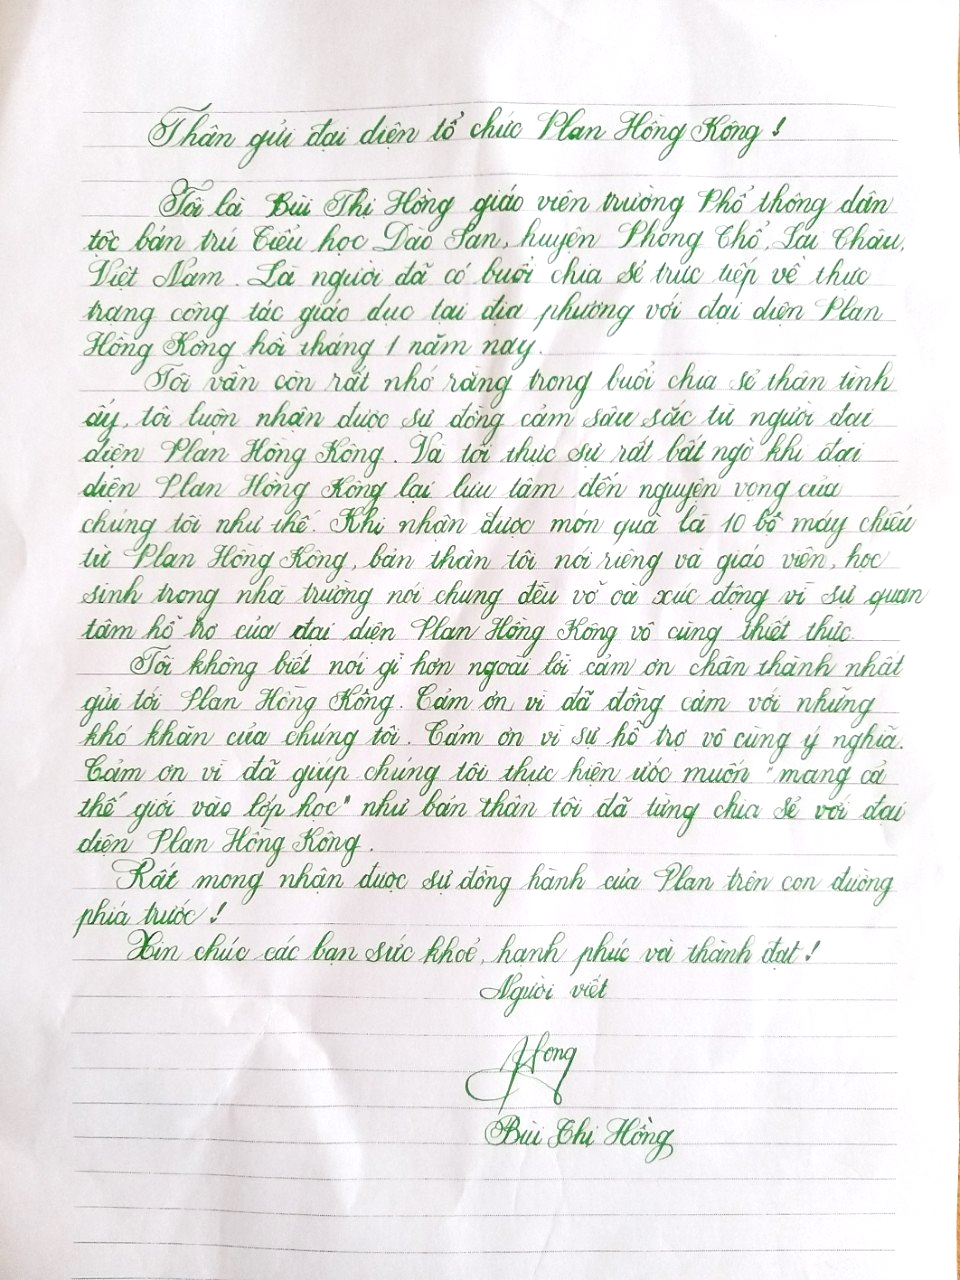 Thân gửi đại diện tổ chức Plan Hồng Kông !
Tôi là Bùi Thị Hồng giáo viên trường Phổ thông dân
tộc bán trú Tiểu học Dào San, huyện Phong Thổ, Lai Châu,
Việt Nam. Là người đã có buổi chia sẻ trực tiếp về thực
trạng công tác giáo dục tại địa phương với đại diện Plan
Hồng Kông hồi tháng 1 năm nay.
Tôi vẫn còn rất nhớ rằng trong buổi chia sẻ thân tình
ấy, tôi luôn nhận được sự đồng cảm sâu sắc từ người đại
diện Plan Hồng Kông. Và tôi thực sự rất bất ngờ khi đại
diện Plan Hồng Kông lại lưu tâm đến nguyện vọng của
chúng tôi như thế. Khi nhận được món quà là 10 bộ máy chiếu
từ Plan Hồng Kông, bản thân tôi nói riêng và giáo viên, học
sinh trong nhà trường nói chung đều vỡ oà xúc động vì sự quan
tâm hỗ trợ của đại diện Plan Hồng Kông vô cùng thiết thực.
Tôi không biết nói gì hơn ngoài lời cảm ơn chân thành nhất
gửi tới Plan Hồng Kông. Cảm ơn vì đã đồng cảm với những
khó khăn của chúng tôi. Cảm ơn vì sự hỗ trợ vô cùng ý nghĩa.
Cảm ơn vì đã giúp chúng tôi thực hiện ước muốn "mang cả
thế giới vào lớp học" như bản thân tôi đã từng chia sẻ với đại
diện Plan Hồng Kông.
Rất mong nhận được sự đồng hành của Plan trên con đường
phía trước !
Xin chúc các bạn sức khoẻ, hạnh phúc và thành đạt !
Người viết
Hong
Bùi Thị Hồng